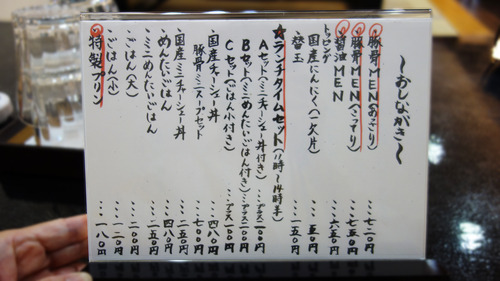 ～おしながき～
豚骨MEN(あっさり)・・・七二〇円
豚骨MEN(こってり)・・・七五〇円
醤油MEN・・・六五〇円
トッピング
国産にんにく(一欠片)・・・五〇円
替玉・・・一五〇円
★ランチタイムセット(11時～14時半)
Aセット(ミニチャーシュー丼付き)・・・プラス二〇〇円
Bセット(ミニめんたいごはん付き)・・・プラス一〇〇円
Cセット(ごはん小付き)・・・プラス一〇〇円
国産チャーシュー丼・・・四八〇円
豚骨ミニスープセット・・・七〇〇円
国産ミニチャーシュー丼・・・二五〇円
めんたいごはん・・・四八〇円
ミニめんたいごはん・・・二五〇円
ごはん(大)・・・二〇〇円
ごはん(小)・・・一二〇円
特製プリン・・・一八〇円